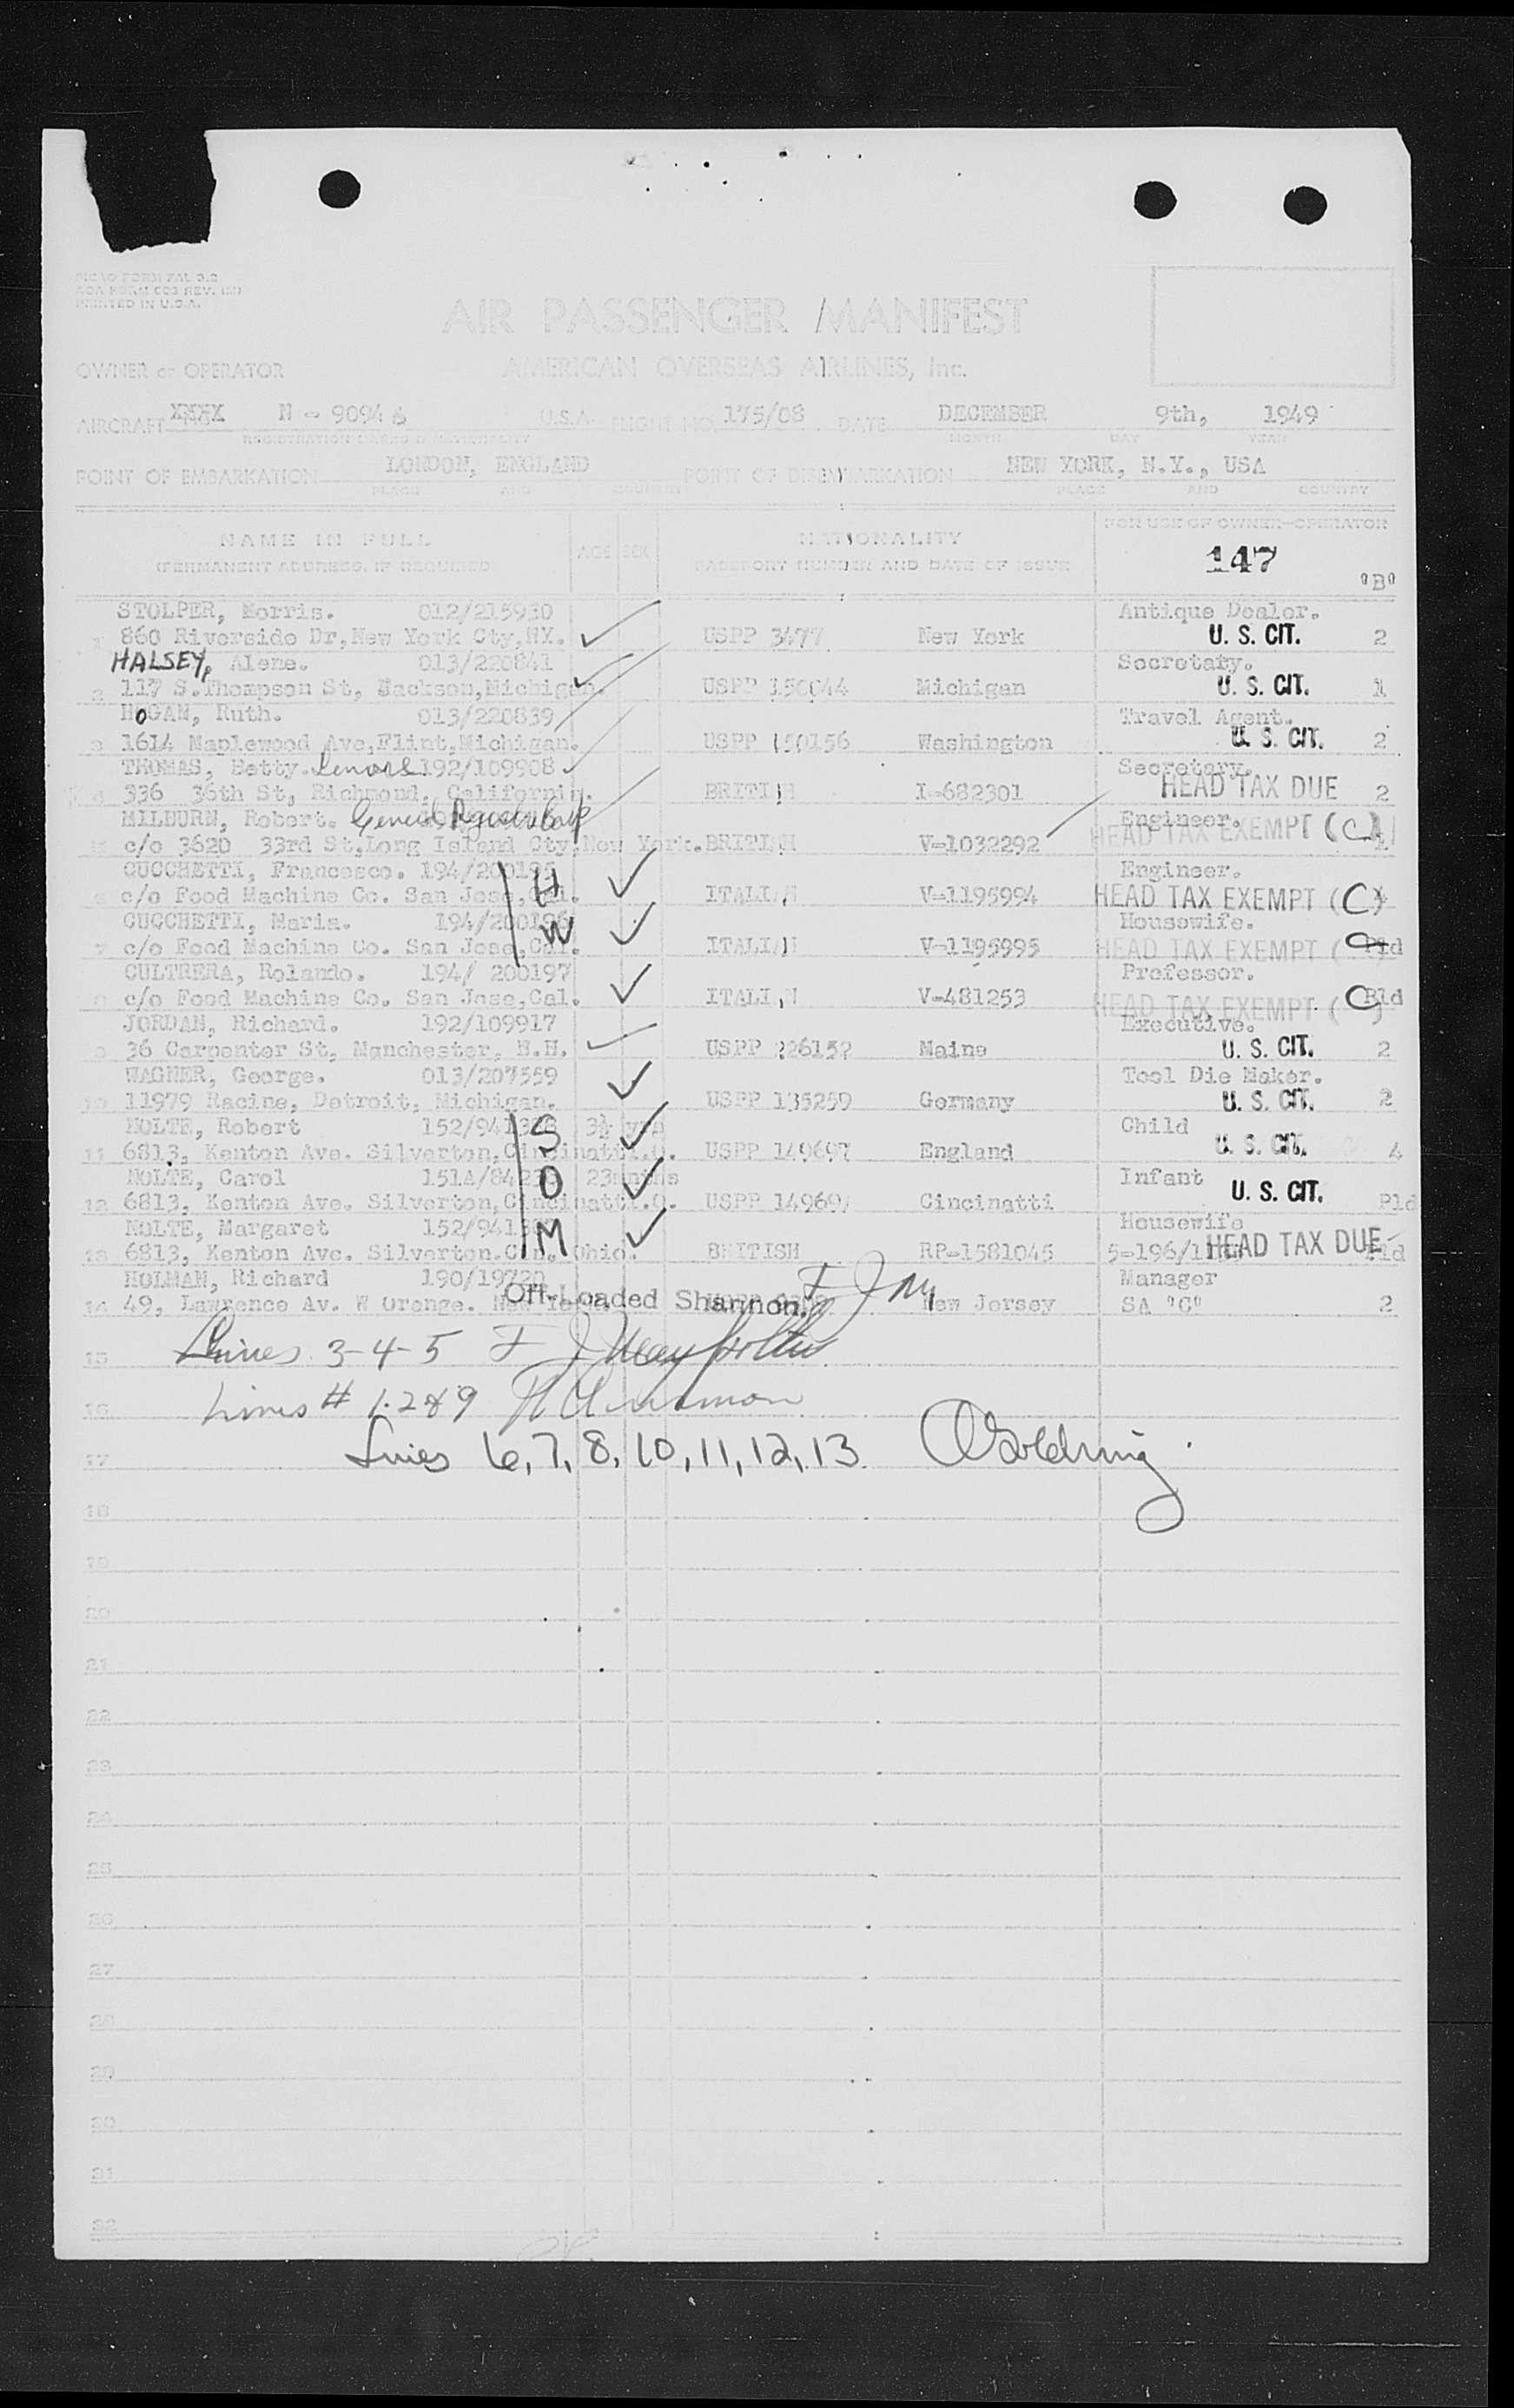 PRINTED IN U.S.A.
AIR PASSENGER MANIFEST
OWNER or OPERATOR AMERICAN OVERSEAS AIRLINES, Inc.
AIRCRAFT XXXX N - 90946 U.S.A. FLIGHT NO. 175/08 DATE DECEMBER 9th, 1949
REGISTRATION MARKS & NATIONALITY MONTH DAY YEAR
POINT OF EMBARKATION LONDON, ENGLAND POINT OF DISEMBARKATION NEW YORK, N.Y., USA
PLACE AND COUNTRY PLACE AND COUNTRY
NAME IN FULL AGE SEX NATIONALITY FOR USE OF OWNER-OPERATOR
(PERMANENT ADDRESS, IF REQUIRED) PASSPORT NUMBER AND DATE OF ISSUE 147 "B"
STOLPER, Morris. 012/215930 Antique Dealer.
1 860 Riverside Dr, New York Cty, NY. USPP 3477 New York U. S. CIT. 2
HALSEY, Alene. 013/220841 Secretary.
2 117 S. Thompson St, Jackson, Michigan. USPP 150044 Michigan U. S. CIT. 1
HOGAN, Ruth. 013/220839 Travel Agent.
3 1614 Maplewood Ave, Flint, Michigan. USPP 150156 Washington U. S. CIT. 2
THOMAS, Betty. Lenore 192/109908 Secretary.
4 336 36th St, Richmond, California. BRITISH I-682301 HEAD TAX DUE 2
MILBURN, Robert. Engineer.
5 c/o 3620 33rd St, Long Island Cty, New York. BRITISH V-1032292 HEAD TAX EXEMPT (C)
CUCCHETTI, Francesco. 194/200195 H Engineer.
6 c/o Food Machine Co. San Jose, Cal. ITALIAN V-1195994 HEAD TAX EXEMPT (C)
CUCCHETTI, Maria. 194/200196 W Housewife.
7 c/o Food Machine Co. San Jose, Cal. ITALIAN V-1195995 HEAD TAX EXEMPT (C) Pld
CULTRERA, Rolando. 194/ 200197 Professor.
8 c/o Food Machine Co. San Jose, Cal. ITALIAN V-481253 HEAD TAX EXEMPT (C) Pld
JORDAN, Richard. 192/109917 Executive.
9 36 Carpenter St, Manchester, N.H. USPP 226152 Maine U. S. CIT. 2
WAGNER, George. 013/207559 Tool Die Maker.
10 11979 Racine, Detroit, Michigan. USPP 135259 Germany U. S. CIT. 2
NOLTE, Robert S 3½ yrs Child
11 6813, Kenton Ave. Silverton, Cincinatti.O. USPP 149697 England U. S. CIT. 4
NOLTE, Carol D 23mnths Infant
12 6813, Kenton Ave. Silverton, Cincinatti.O. USPP 14969 Cincinatti U. S. CIT. Pld
NOLTE, Margaret M Housewife
13 6813, Kenton Ave. Silverton. Cin. Ohio. BRITISH RP-1581045 HEAD TAX DUE Pld
HOLMAN, Richard 190/19720 Manager
14 49, Lawrence Av. W Orange. Off-Loaded Shannon. New Jersey SA "C" 2
15 Lines 3-4-5
16 Lines # 1.2&9
17 Lines 6,7,8,10,11,12,13 Goldring
18
19
20
21
22
23
24
25
26
27
28
29
30
31
32